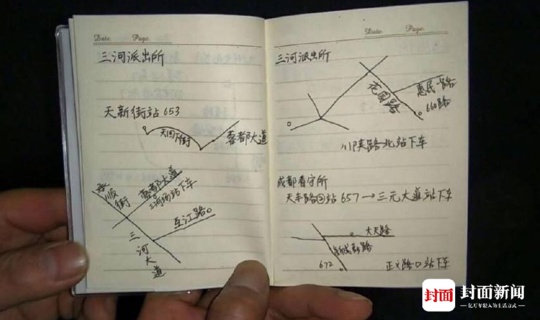 Date: Page:
三河派出所
天新街站 653
天回街
蓉都大道
顺街
蓉都大道
三河场站下车
互江路
三河大道
Date: Page:
三河派出所
花园路
惠民路
660路
川陕路北站下车
成都看守所
657→三元大道站下车
大天路
672
正义路口站下车
封面 封面新闻
亿万年轻人的生活方式